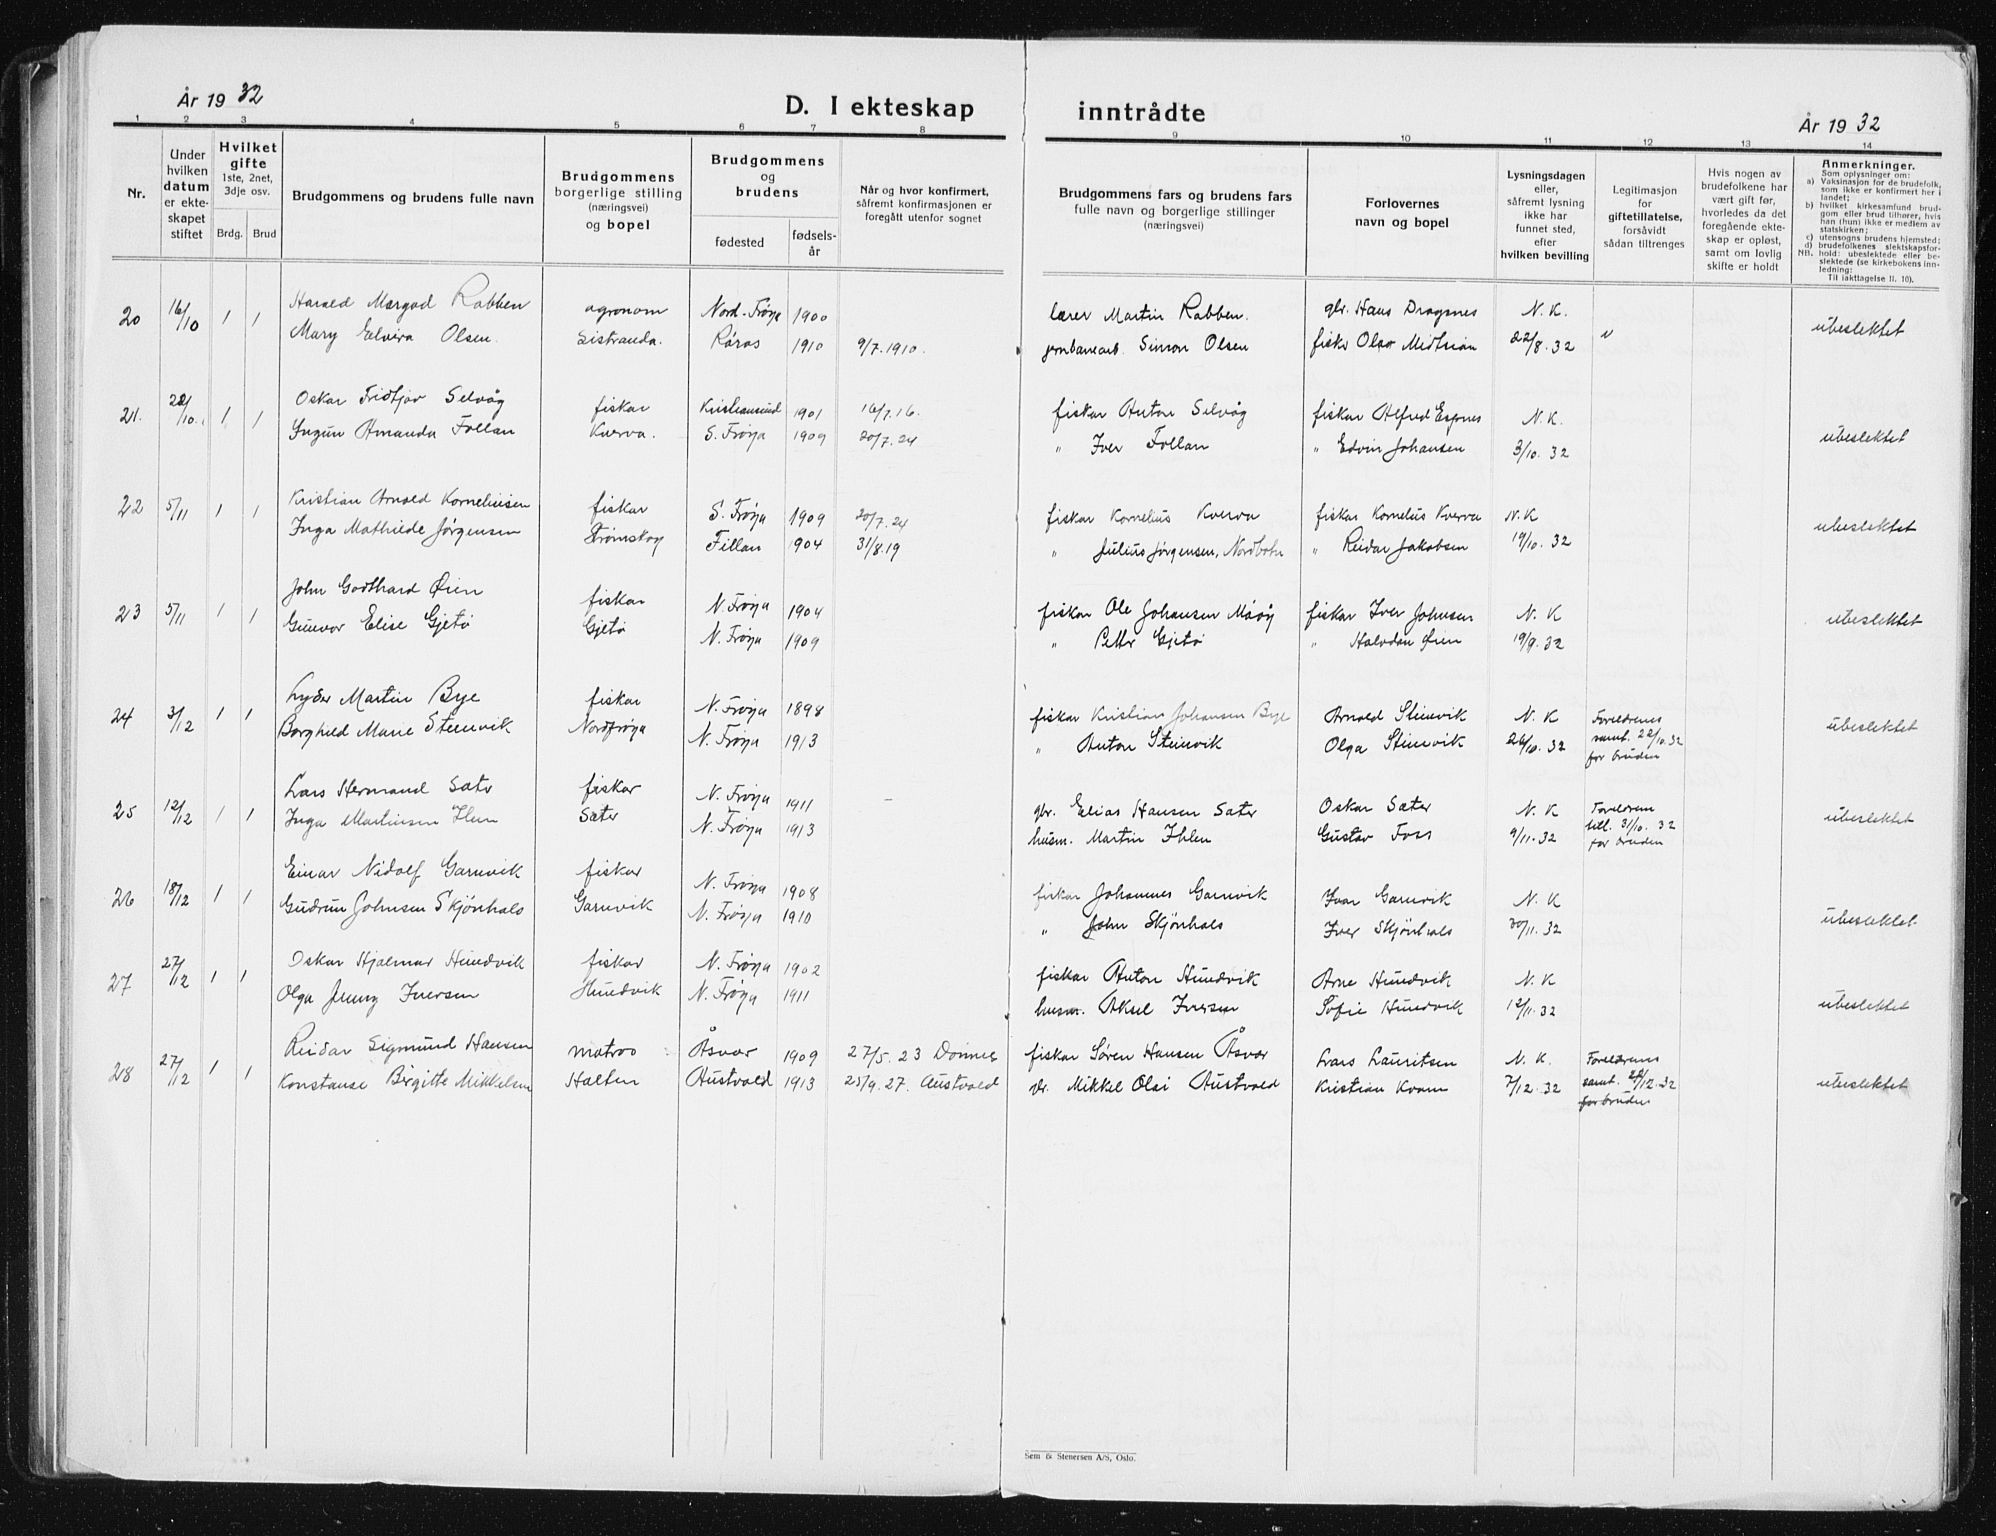 År 1932
D. I ekteskap
inntrådte
År 1932
1 2 3 4 5 6 7 8 9 10 11 12 13 14
Nr.
Under
hvilken
datum
er ekte-
skapet
stiftet
Hvilket
gifte
1ste, 2net,
3dje osv.
Brdg. Brud
Brudgommens og brudens fulle navn
Brudgommens
borgerlige stilling
(næringsvei)
og bopel
Brudgommens
og
brudens
fødested
fødsels-
år
Når og hvor konfirmert,
såfremt konfirmasjonen er
foregått utenfor sognet
Brudgommens fars og brudens fars
fulle navn og borgerlige stillinger
(næringsvei)
Forlovernes
navn og bopel
Lysningsdagen
eller,
såfremt lysning
ikke har
funnet sted,
efter
hvilken bevilling
Legitimasjon
for
giftetillatelse,
forsåvidt
sådan tiltrenges
Hvis nogen av
brudefolkene har
vært gift før,
hvorledes da det
foregående ekte-
skap er opløst,
samt om lovlig
skifte er holdt
Anmerkninger.
Som oplysninger om:
a) Vaksinasjon for de brudefolk,
som ikke er konfirmert her i
landet;
b) hvilket kirkesamfund brud-
gom eller brud tilhører, hvis
han (hun) ikke er medlem av
statskirken;
c) utensogns brudens hjemsted;
d) brudefolkenes slektskapsfor-
NB. hold: ubeslektede eller be-
slektede (se kirkebokens inn-
ledning:
Til iakttagelse II. 10).
20 16/10 1 1 Harald Margod Rabben agronom Nord-Frøya 1900 lærer Martin Rabben. gbr. Hans Dragsnes N. K. ubeslektet
Mary Elvira Olsen. Sistranda. Røros 1910 9/7.1910. jernbanearb. Simon Olsen fisker Olav Midtsian 22/8.32
21. 22/10. 1 1 Oskar Fridtjov Selvåg fiskar Kristiansund 1901 16/7.16. fiskar Anton Selvåg fiskar Alfred Espnes N. K. ubeslektet
Ingun Amanda Follan Kverva. S. Frøya 1909 20/7.24 " Iver Follan " Edvin Johansen 3/10. 32
22 5/11 1 1 Kristian Arnold Korneliussen fiskar S. Frøya 1909 20/7.24 fiskar Kornelius Kverva fiskar Kornelius Kverva N. K ubeslektet
Inga Mathilde Jørgensen Strømskag Fillan 1904 31/8.19 " Julius Jørgensen, Nordbotn " Reidar Jakobsen 19/10. 32
23 5/11 1 1 John Godthard Øien fiskar N. Frøya 1904 fiskar Ole Johansen Måøy fiskar Iver Johnsen N. K ubeslektet
Gunvor Elise Gjetø Gjetø N. Frøya 1909 " Petter Gjetø " Halvdan Øien 19/9. 32
24 3/12 1 1 Lyder Martin Bye fiskar N. Frøya 1898 fiskar Kristian Johansen Bye Arnold Stenvik N. K Foreldrenes ubeslektet
Borghild Marie Steinvik Nordfrøya N. Frøya 1913 " Anton Steinvik Olga Steinvik 26/10. 32 samt. 22/10. 32
for bruden
25 12/12 1 1 Lars Hermand Sæter fiskar N. Frøya 1911 – gbr. Elias Hansen Sæter Oskar Sæter N. K Foreldrenes ubeslektet
Inga Martinsen Ilen Sæter N. Frøya 1913 husm. Martin Ihlen Gustav Foss 9/11. 32 till. 31/10. 32
for bruden
26 18/12 1 1 Einar Nidolf Garnvik fiskar N. Frøya 1908 fiskar Johannes Garnvik Ivar Garnvik N. K ubeslektet
Gudrun Johnsen Skjønhals Garnvik N. Frøya 1910 " John Skjønhals Iver Skjønhals 30/11. 32
27 27/12 1 1 Oskar Hjalmar Hundvik fiskar N. Frøya 1902 fiskar Anton Hundvik Arne Hundvik N. K ubeslektet
Olga Jenny Iversen Hundvik N. Frøya 1911 husm. Aksel Iversen Sofie Hundvik 12/11. 32
28 27/12 1 1 Reidar Sigmund Hansen matros Åsvær 1909 27/5. 23 Dønnes fiskar Søren Hansen Åsvær Lars Lauritsen N. K. Foreldrenes ubeslektet
Konstanse Birgitte Mikkelsen Halten Austvold 1913 25/9. 27. Austvold Mikkel Olai Austvold Kristian Kvam 7/12. 32 samt. 22/12. 32
for bruden
Sem & Stenersen A/S, Oslo.